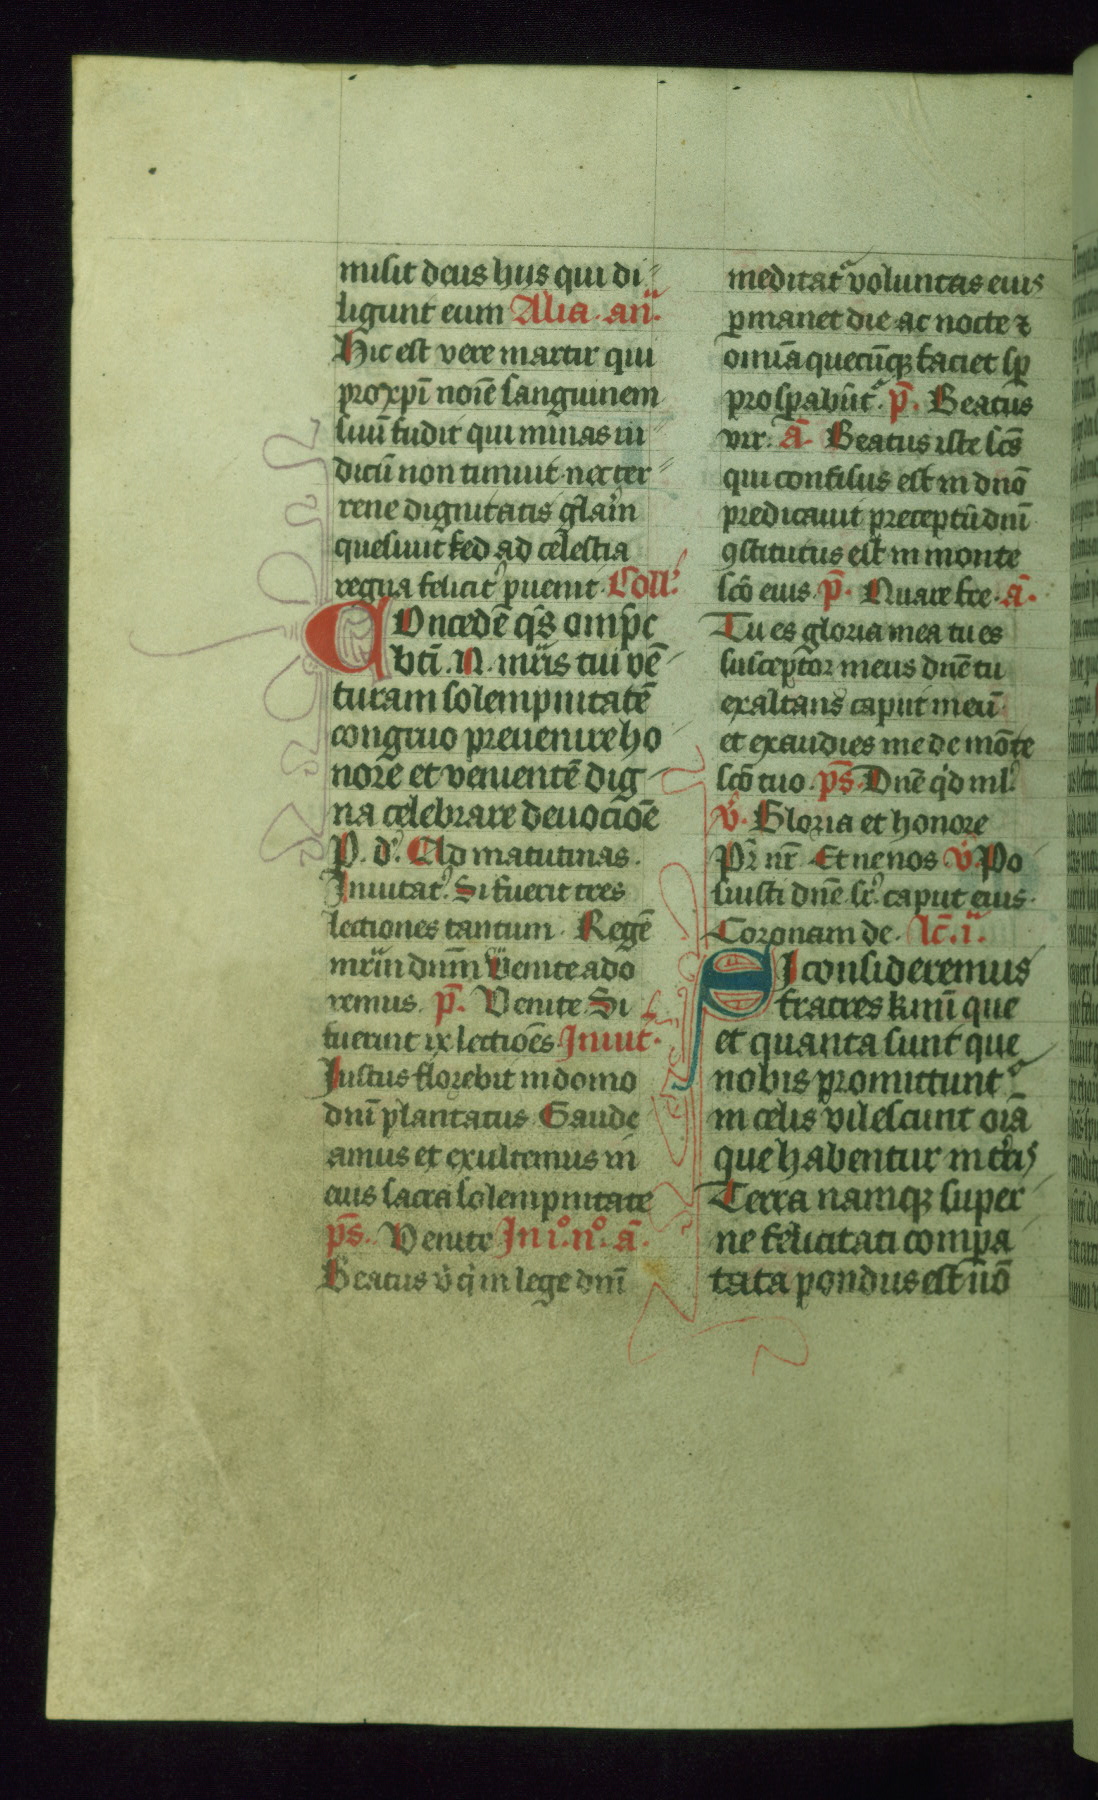 misit deus hiis qui di
ligunt eum Alia. an̄.
Hic est vere martir qui
pro xp̄i noīe sanguinem
suū fudit qui minas iu
dicū non timuit nec ter
rene dignitatis gl̄am
quesiuit sed ad celestia
regna felicit᾽ puenit. Coll᾽.
Concede q̄s omp̄s
bt̄i .N. mr̄is tui vē
turam solempnitatē
congruo preuenire ho
nore et venientē dig
na celebrare deuocioē
P. d᾽. Ad matutinas.
Inuitat᾽. Si fuerit tres
lectiones tantum. Regē
mr̄m dn̄m Venite ado
remus. p̄. Venite. Si
fuerint ix lectioēs Inuit.
Iustus florebit in domo
dn̄i plantatus Gaude
amus et exultemus in
eius sacra solempnitate
p̄s. Venite In i᷎. n᷎. ā.
Beatus v᷎ q᷎ in lege dn̄i
meditat᷎ voluntas eius
ꝑmanet die ac nocte ⁊
omīa quecūqꝫ faciet sꝑ
prosꝑabūt᷎. p̄. Beatus
vir. ā. Beatus iste sc̄s
qui confisus est in dn̄o
predicauit preceptū dn̄i
ꝯstitutus est in monte
sc̄o eius. p̄. Quare fre. ā.
Tu es gloria mea tu es
susceptor meus dn̄e tu
exaltans caput meū
et exaudies me de mōte
sc̄o tuo. p̄s. Dn̄e q᷎d ml᾽.
v᷎. Gloria et honore
Pr̄ nr̄. Et ne nos. v᷎. Po
suisti dn̄e s᷎r caput eius.
Coronam de. lc̄. i.ᵃ
Si consideremus
fratres kmī que
et quanta sunt que
nobis promittunt᷎
in celis vilescunt oīa
que habentur in t᷎ris
Terra namqꝫ super
ne felicitati compa
tata pondus est nō